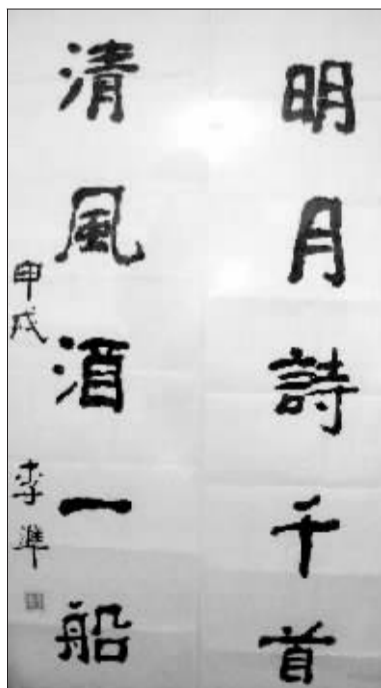 明月詩千首
清風酒一船
甲戌 李準